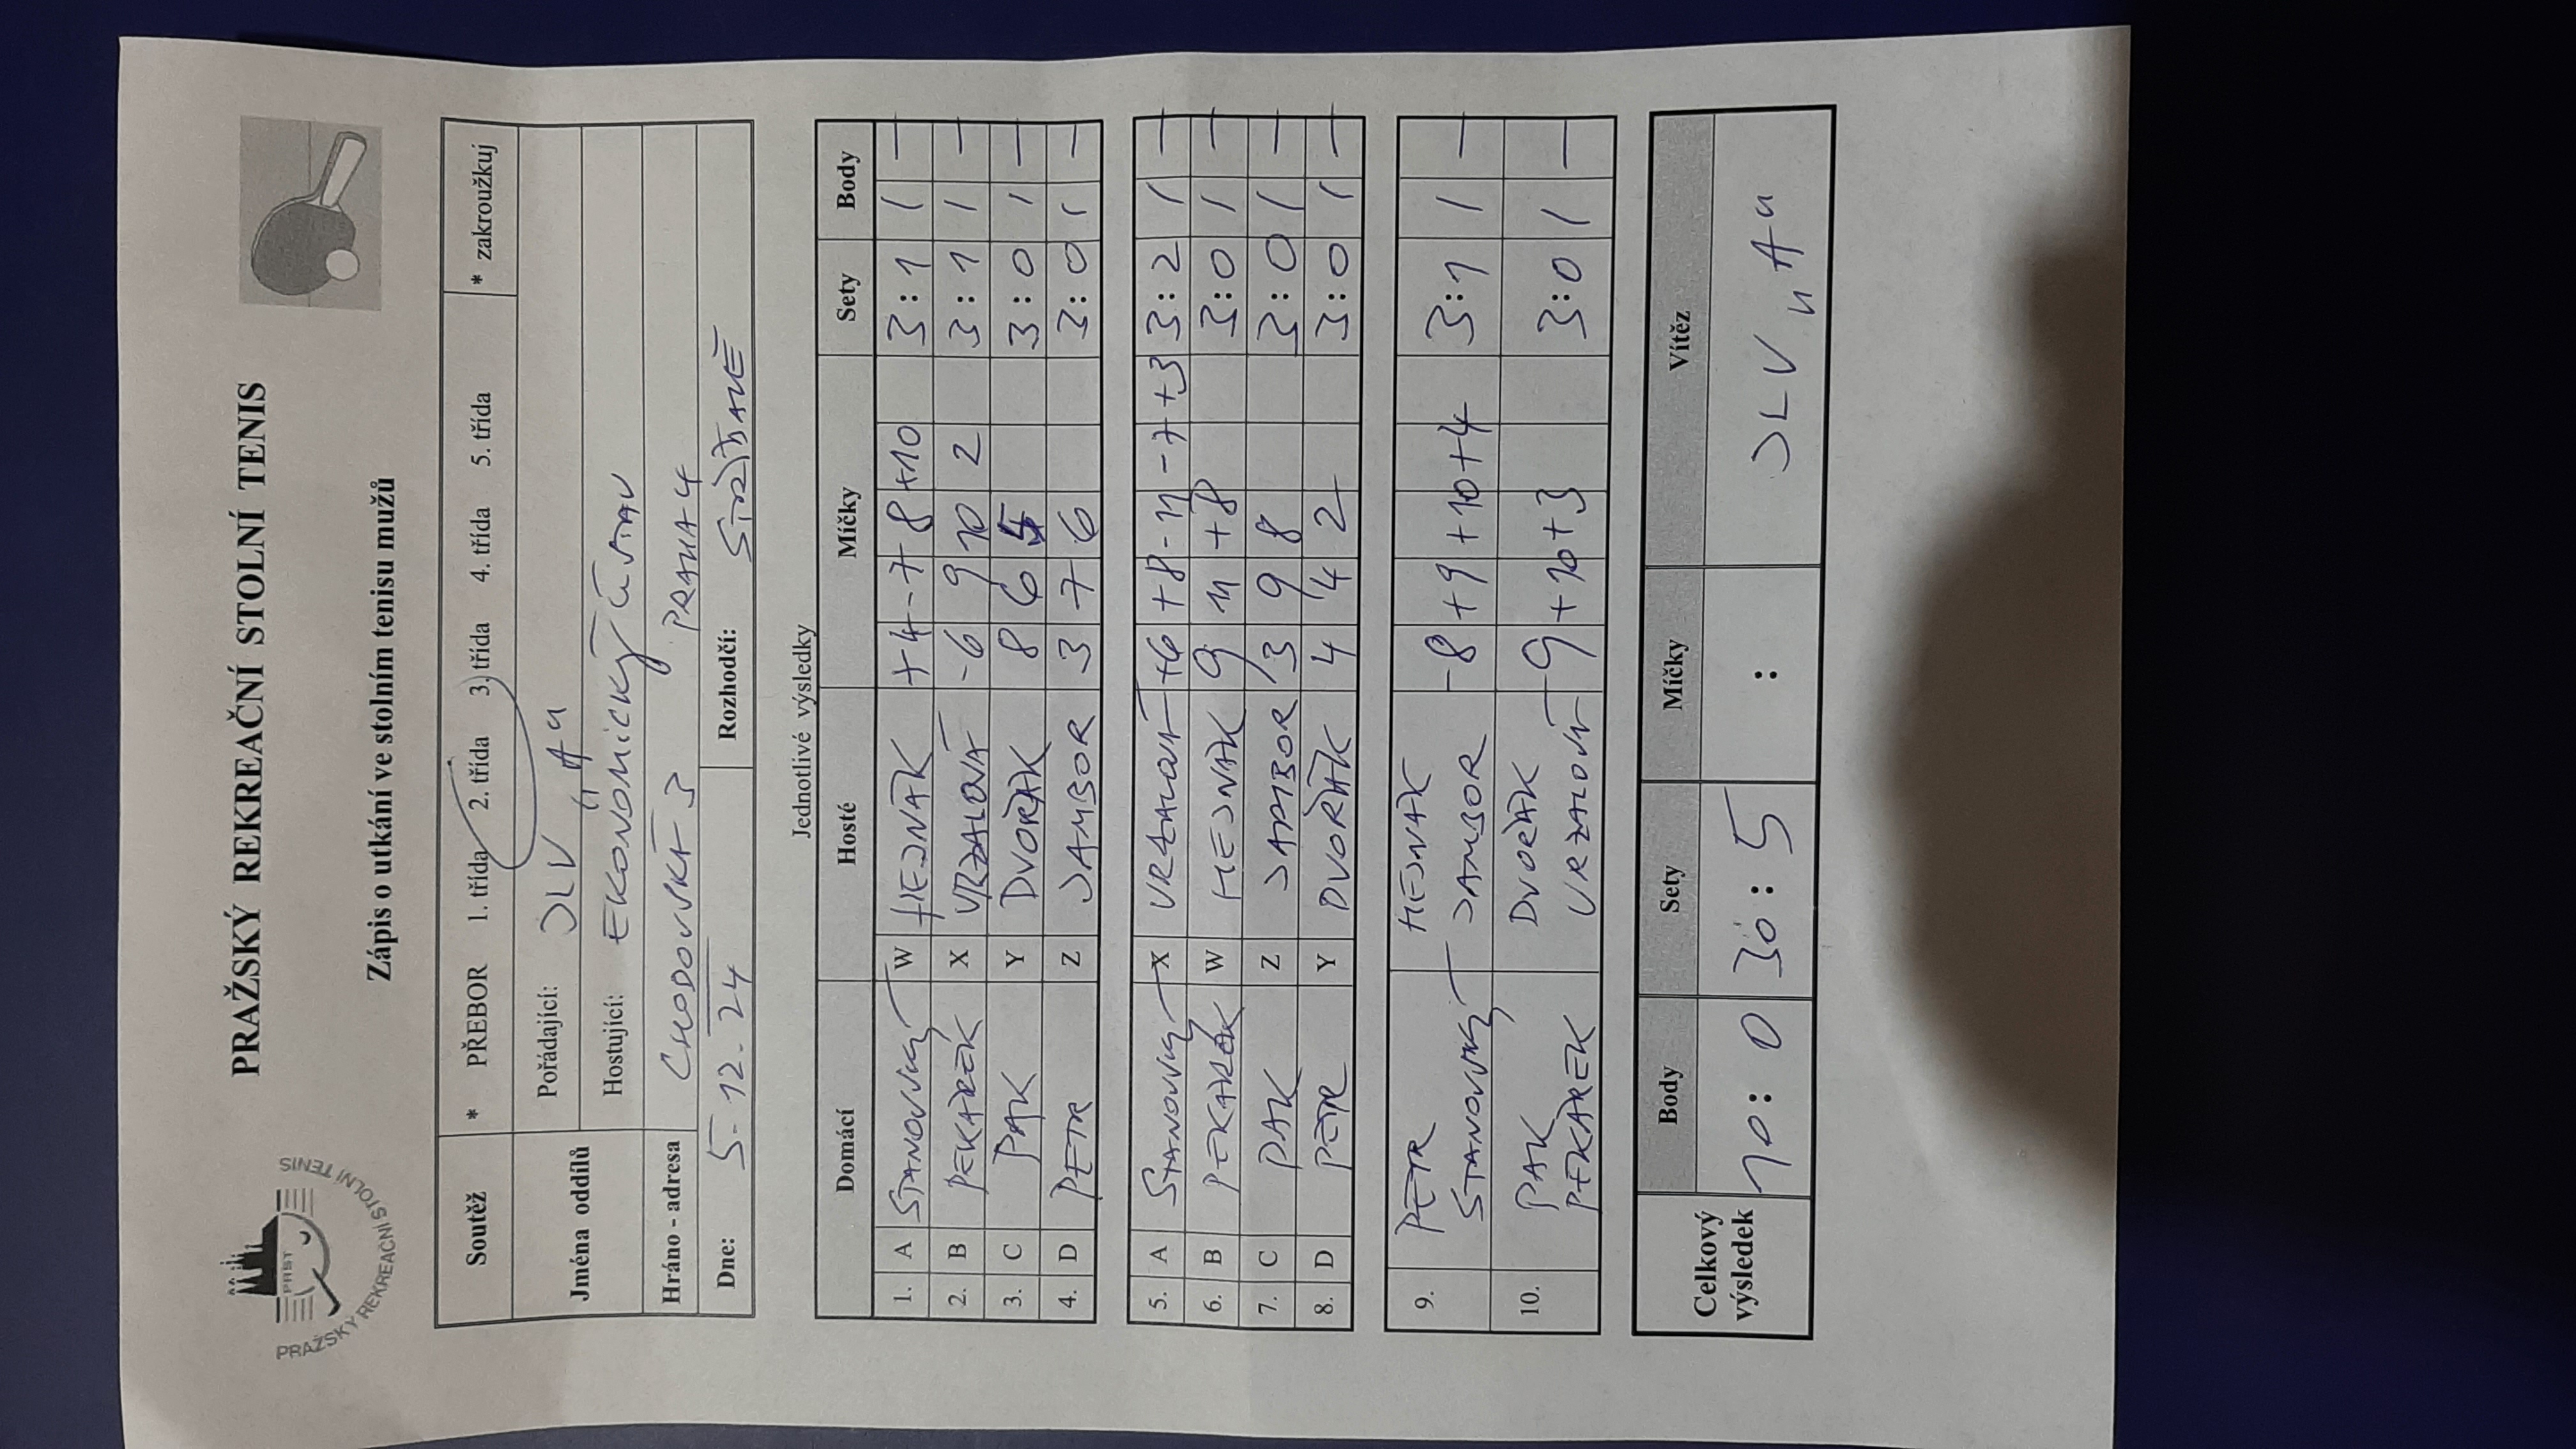 PRAŽSKÝ REKREAČNÍ STOLNÍ TENIS
PRST
PRAŽSKÝ REKREAČNÍ STOLNÍ TENIS
Zápis o utkání ve stolním tenisu mužů
Soutěž * PŘEBOR 1. třída 2. třída 3. třída 4. třída 5. třída * zakroužkuj
Jména oddílů Pořádající: JLV "A"
Hostující: EKONOMICKÝ ÚSTAV
Hráno - adresa CHODOVSKÁ 3 PRAHA 4
Dne: 5. 12. 24 Rozhodčí:
Jednotlivé výsledky
Domácí Hosté Míčky Sety Body
1. A STANOVSKÝ W HEJNÁK +4 -7 +8 +10 3:1 1 —
2. B PEKÁREK X VRZALOVÁ -6 9 10 2 3:1 1 —
3. C PAK Y DVOŘÁK 8 6 5 3:0 1 —
4. D PETR Z JAMBOR 3 7 6 3:0 1 —
5. A STANOVSKÝ X VRZALOVÁ +6 +8 -11 -7 +3 3:2 1 —
6. B PEKÁREK W HEJNÁK 9 11 +8 3:0 1 —
7. C PAK Z JAMBOR 3 9 8 3:0 1 —
8. D PETR Y DVOŘÁK 4 4 2 3:0 1 —
9. PETR HEJNÁK -8 +9 +10 +4 3:1 1 —
STANOVSKÝ JAMBOR
10. PAK DVOŘÁK 9 +10 +3 3:0 1 —
PEKÁREK VRZALOVÁ
Celkový výsledek Body Sety Míčky Vítěz
10:0 30:5 : JLV "A"